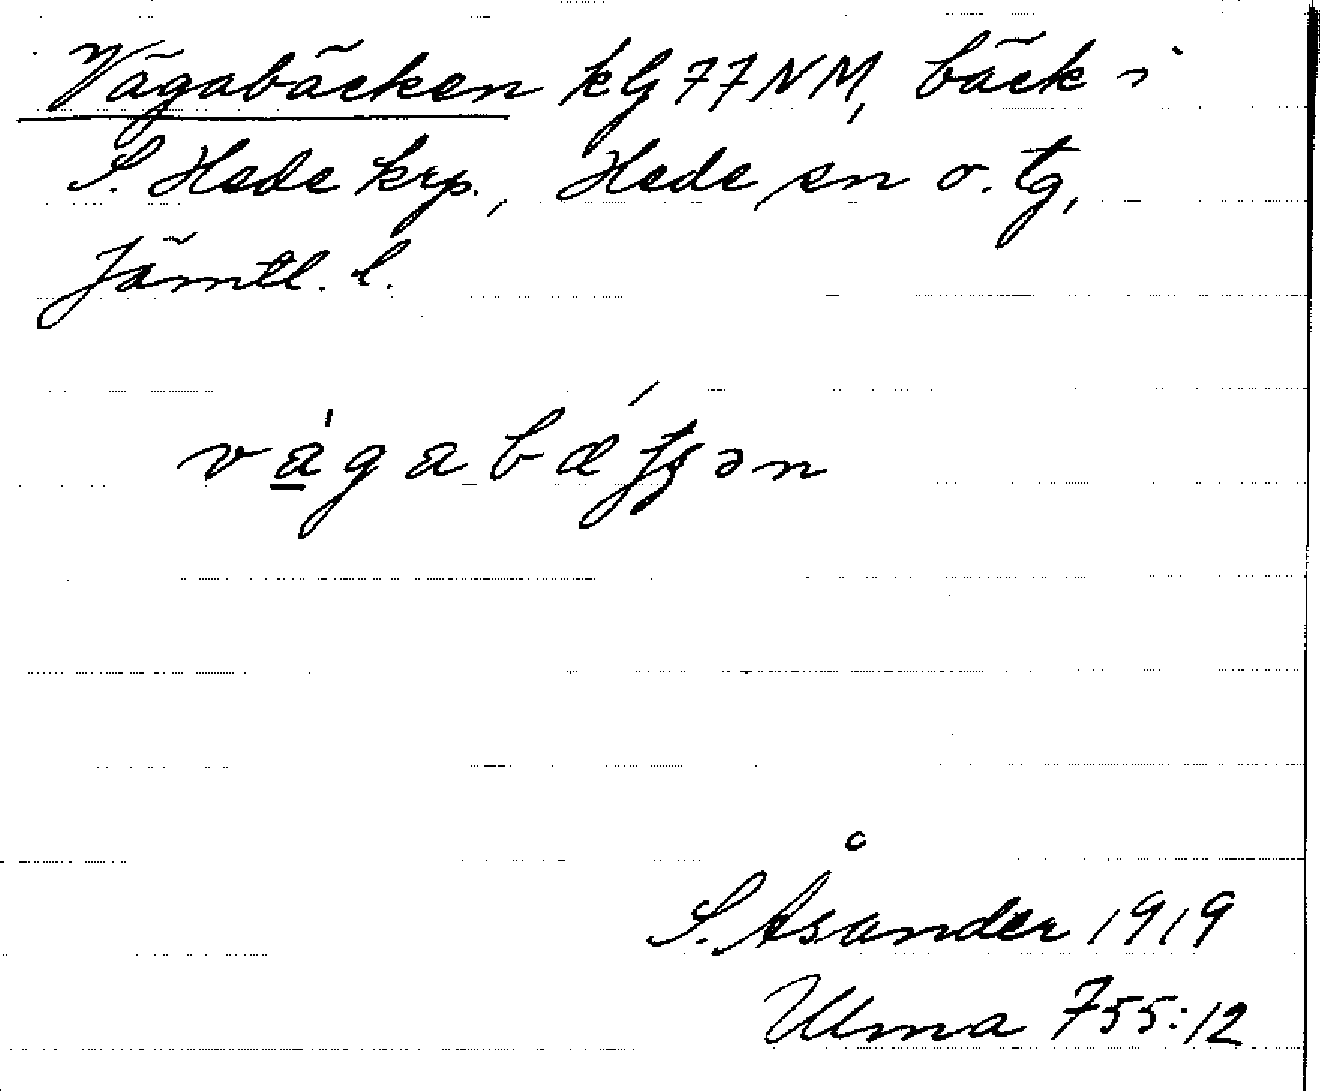 Vägabäcken kG77NM, bäck i
S. Hede krp., Hede sn o. tg,
Jämtl. l.
S. Åsander 1919
Ulma 755:12